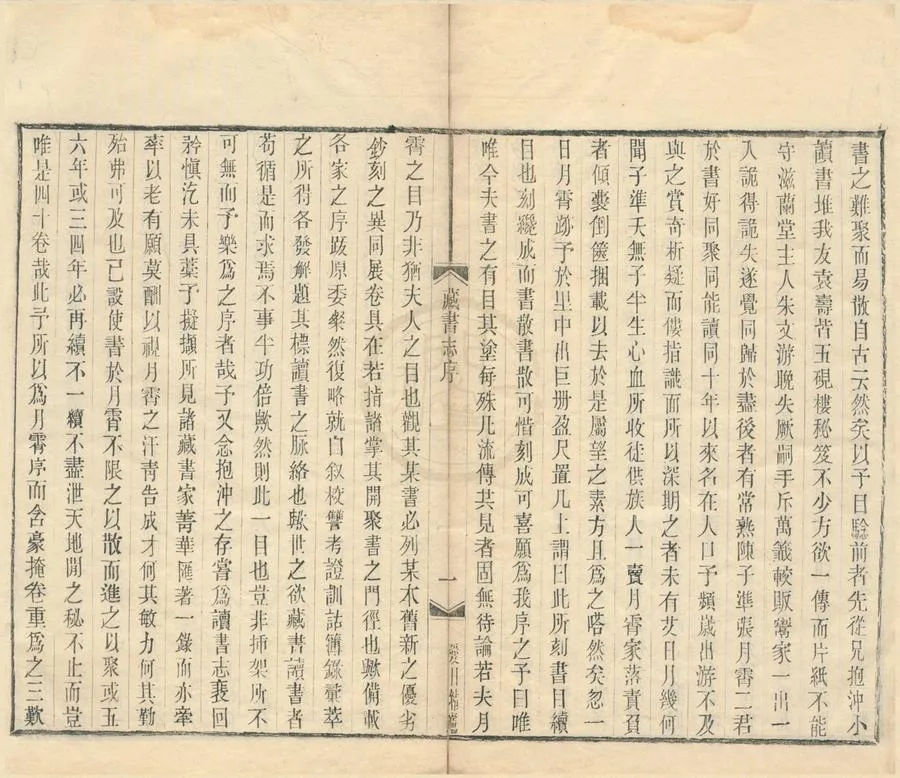 書之難聚而易散自古云然矣以予目驗前者先從兄抱沖小
讀書堆我友袁壽皆五硯樓秘笈不少方欲一傳而片紙不能
守滋蘭堂主人朱文游晚失厥嗣手斥萬籤較販鬻家一出一
入詭得詭失遂覺同歸於盡後者有常熟陳子準張月霄二君
於書好同聚同能讀同十年以來名在人口予頻歲出游不及
與之賞奇析疑而僂指識面所以深期之者未有艾日月幾何
聞子準夭無子半生心血所收徒供族人一賣月霄家落責負
者傾囊倒篋捆載以去於是屬望之素方且為之嗒然矣忽一
日月霄跡予於里中出巨冊盈尺置几上謂曰此所刻書目續
目也刻纔成而書散書散可惜刻成可喜願為我序之予曰唯
唯今夫書之有目其塗每殊凡流傳共見者固無待論若夫月
藏書志序
一
愛日精廬
霄之目乃非猶夫人之目也觀其某書必列某本舊新之優劣
鈔刻之異同展卷具在若指諸掌其開聚書之門徑也歟備載
各家之序跋原委粲然復略就自叙校讐考證訓詁簿錄彙萃
之所得各發解題其標讀書之脈絡也歟世之欲藏書讀書者
苟循是而求焉不事半功倍歟然則此一目也豈非插架所不
可無而予樂為之序者哉予又念抱沖之存嘗為讀書志裴回
矜慎汔未具藁予擬擷所見諸藏書家菁華匯著一錄而亦牽
率以老有願莫酬以視月霄之汗青告成才何其敏力何其勤
殆弗可及也已設使書於月霄不限之以散而進之以聚或五
六年或三四年必再續不一續不盡泄天地間之秘不止而豈
唯是四十卷哉此予所以為月霄序而含豪掩卷重為之三歎